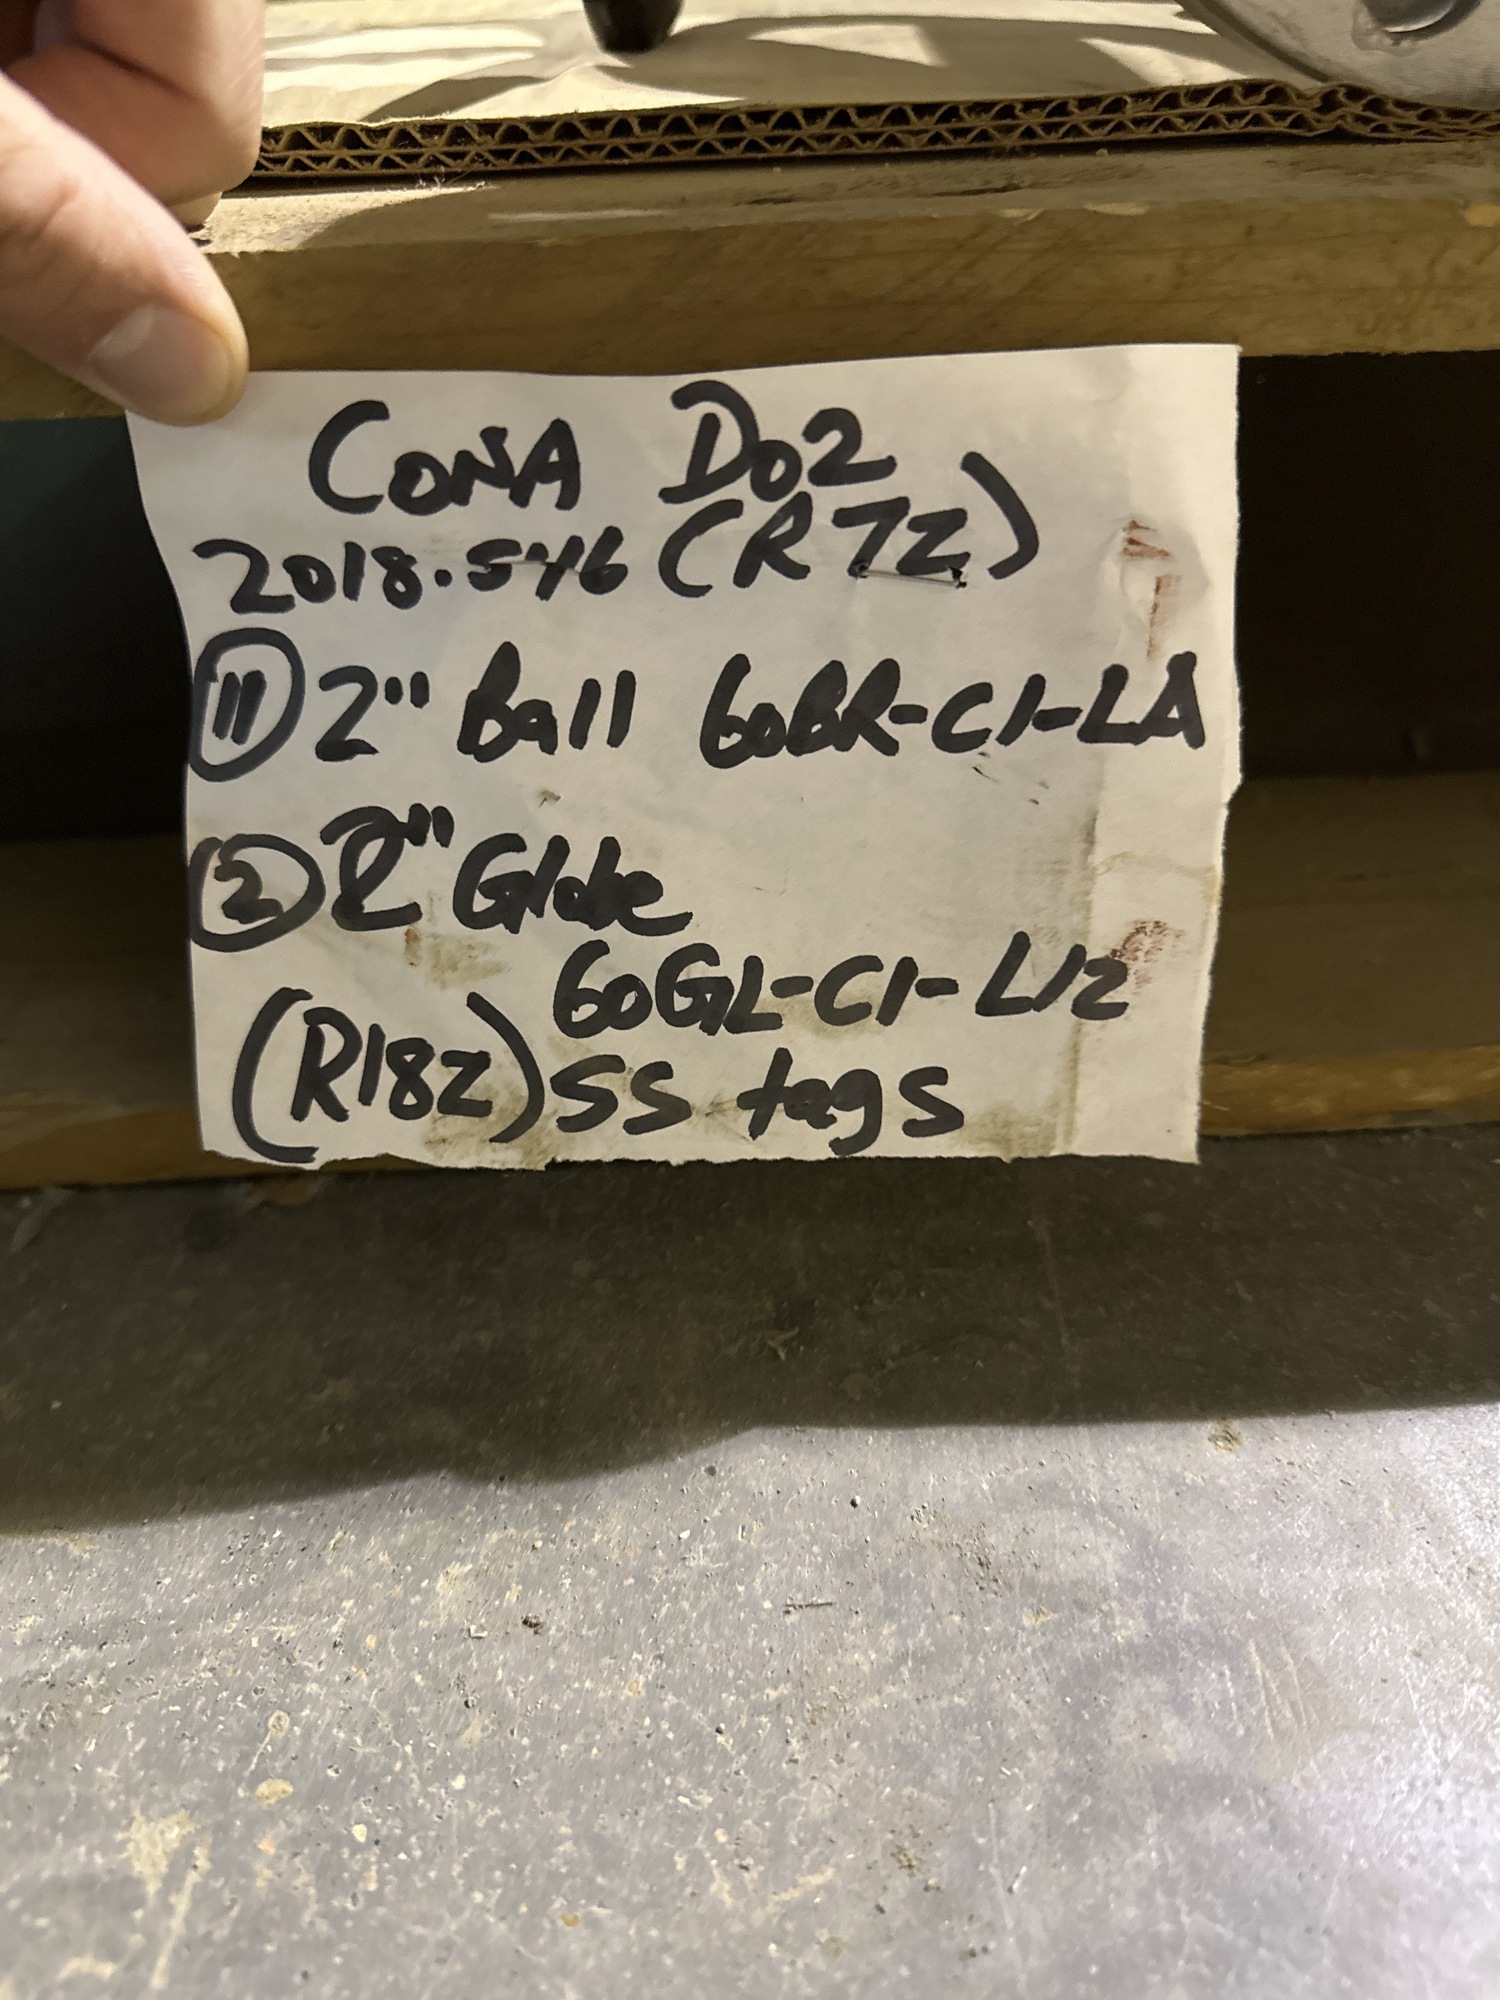 CONA D02
2018.546 (R7Z)
11 2" Ball 60BR-C1-LA
2 2" Globe
60GL-C1-L12
(R18Z) SS tags